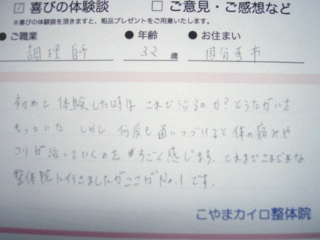 ☑ 喜びの体験談 □ ご意見・ご感想など
※喜びの体験談を頂きますと、粗品プレゼントをご用意いたします。
●ご職業 ●年齢 ●お住まい
調理師 32 歳 国分寺市
初めて体験した時は これで治るのか?とうたがいを
もっていた。しかし 何度も通いつづけると体の痛みや
コリが治っていくのを すごく感じます。これまでさまざまな
整体院に行きましたがここがNo.1です。
こやまカイロ整体院